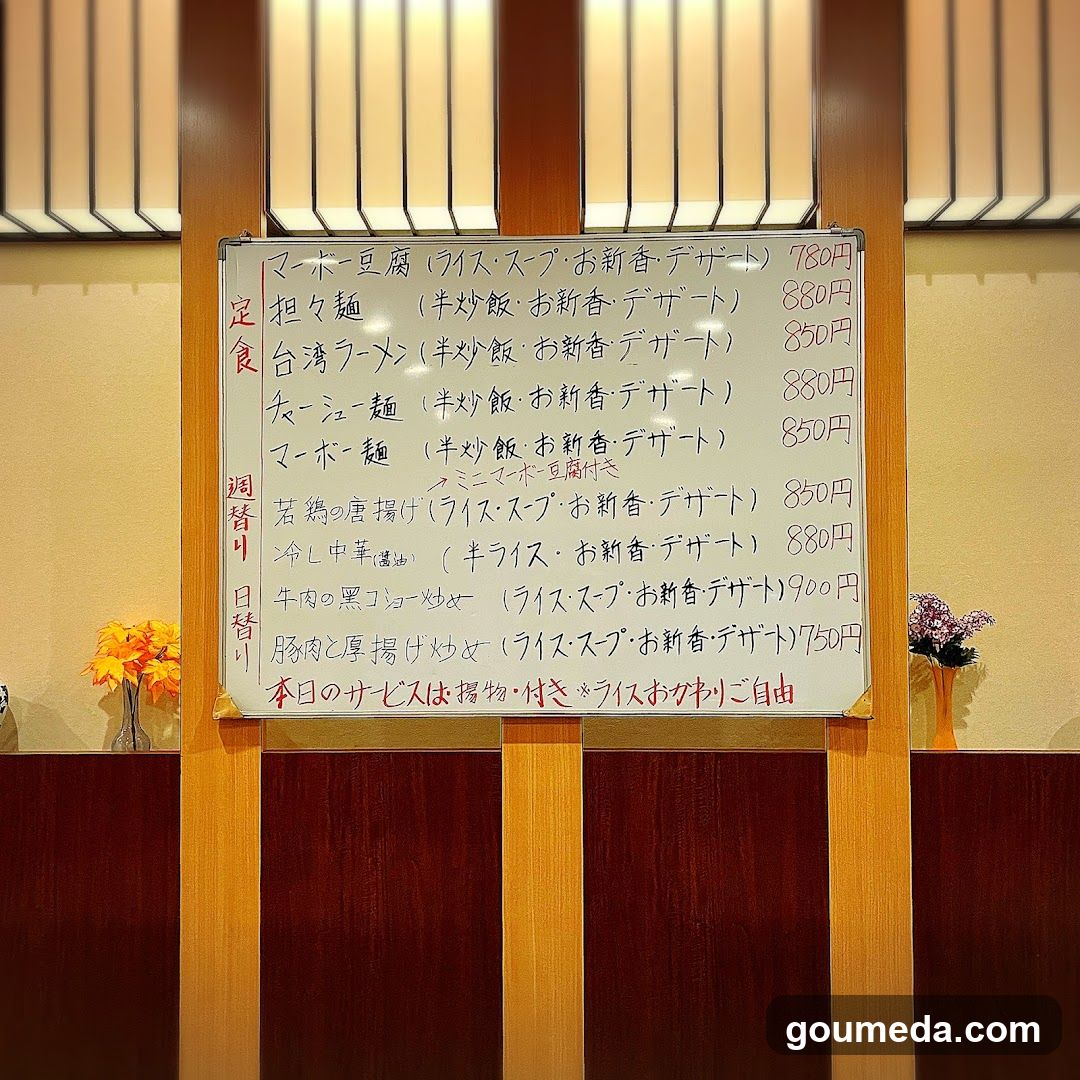 定食
マーボー豆腐 (ライス・スープ・お新香・デザート) 780円
担々麺 (半炒飯・お新香・デザート) 880円
台湾ラーメン (半炒飯・お新香・デザート) 850円
チャーシュー麺 (半炒飯・お新香・デザート) 880円
マーボー麺 (半炒飯・お新香・デザート) 850円
週替り
→ミニマーボー豆腐付き
若鶏の唐揚げ (ライス・スープ・お新香・デザート) 850円
冷し中華(醤油) (半ライス・お新香・デザート) 880円
日替り
牛肉の黒コショー炒め (ライス・スープ・お新香・デザート) 900円
豚肉と厚揚げ炒め (ライス・スープ・お新香・デザート) 750円
本日のサービスは・揚物・付き ※ライスおかわりご自由
goumeda.com